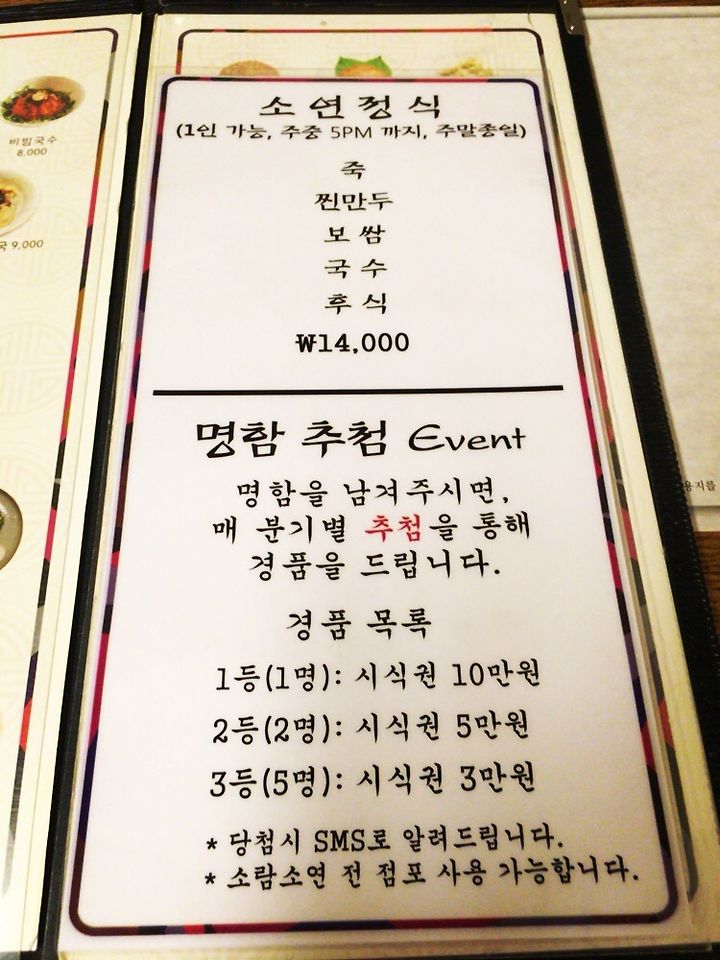 비빔국수
8,000
국 9,000
소연정식
(1인 가능, 주중 5PM 까지, 주말종일)
죽
찐만두
보쌈
국수
후식
₩14,000
명함 추첨 Event
명함을 남겨주시면,
매 분기별 추첨을 통해
경품을 드립니다.
경품 목록
1등(1명): 시식권 10만원
2등(2명): 시식권 5만원
3등(5명): 시식권 3만원
* 당첨시 SMS로 알려드립니다.
* 소람소연 전 점포 사용 가능합니다.
용지를